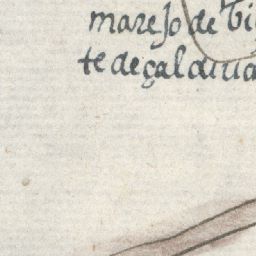 marejo de
te de çaldiua